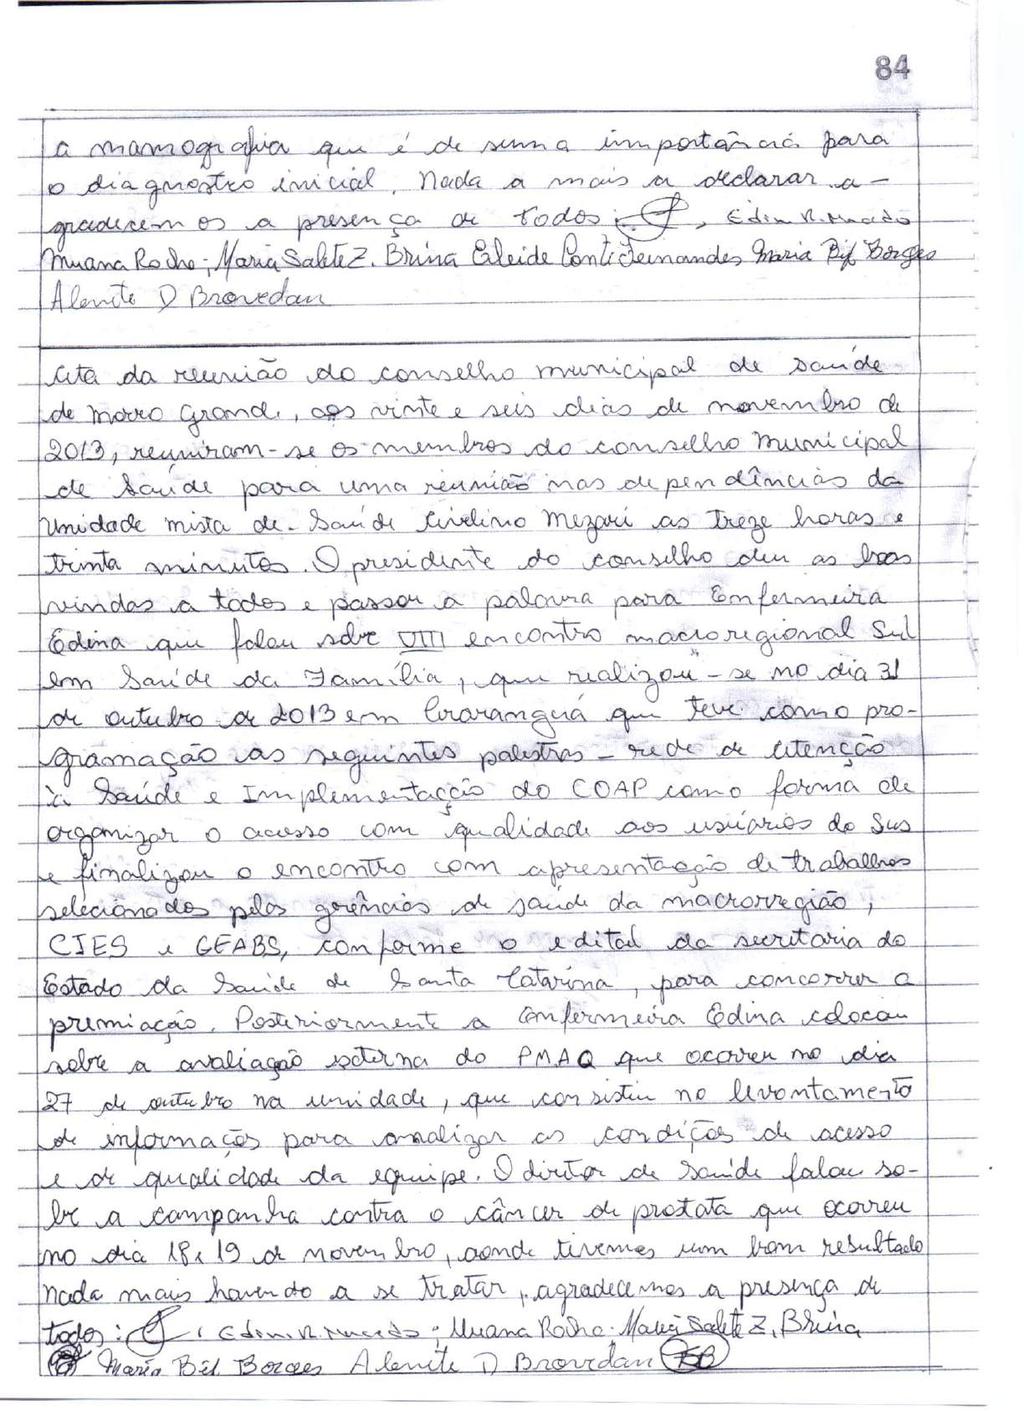 84
a mamografia que é de suma importância para
o diagnostico inicial. Nada a mais a declarar a-
gradecemos a presença de todos:
Muana Rocho; Maria Salete Z. Brina Cleide Conti Fernandes Maria Bif Borges
Alenite D Brovedan
Ata da reunião do conselho municipal de saúde
de Morro Grande, aos vinte e seis dias de novembro de
2013, reuniram-se os membros do conselho Municipal
de Saúde para uma reunião nas dependências da
Unidade mista de Saúde Avelino Mezari as treze horas e
trinta minutos. O presidente do conselho deu as boas
vindas a todos e passou a palavra para Enfermeira
Edina que falou sobre VIII encontro macroregional Sul
em Saúde da Família, que realizou-se no dia 31
de outubro de 2013 em Araranguá que teve como pro-
gramação as seguintes palestras - rede de Atenção
à Saúde e Implementação do COAP como forma de
organizar o acesso com qualidade aos usuários do Sus
e finalizou o encontro com apresentação de trabalhos
selecionados pelas gerências de saúde da macrorregião,
CIES e GEABS, conforme o edital da secretaria do
Estado da Saúde de Santa Catarina, para concorrer a
premiação. Posteriormente a Enfermeira Edina colocou
sobre a avaliação externa do PMAQ que ocorreu no dia
27 de outubro na unidade, que consistiu no levantamento
de informações para analizar as condições de acesso
e de qualidade da equipe. O diretor de Saúde falou so-
bre a campanha contra o câncer de prostata que ocorreu
no dia 18 e 19 de novembro, aonde tivemos um bom resultado
Nada mais havendo a se tratar, agradecemos a presença de
todos: Muana Rocho. Maria Salete Z. Brina
Maria Bif Borges Alenite D Brovedan